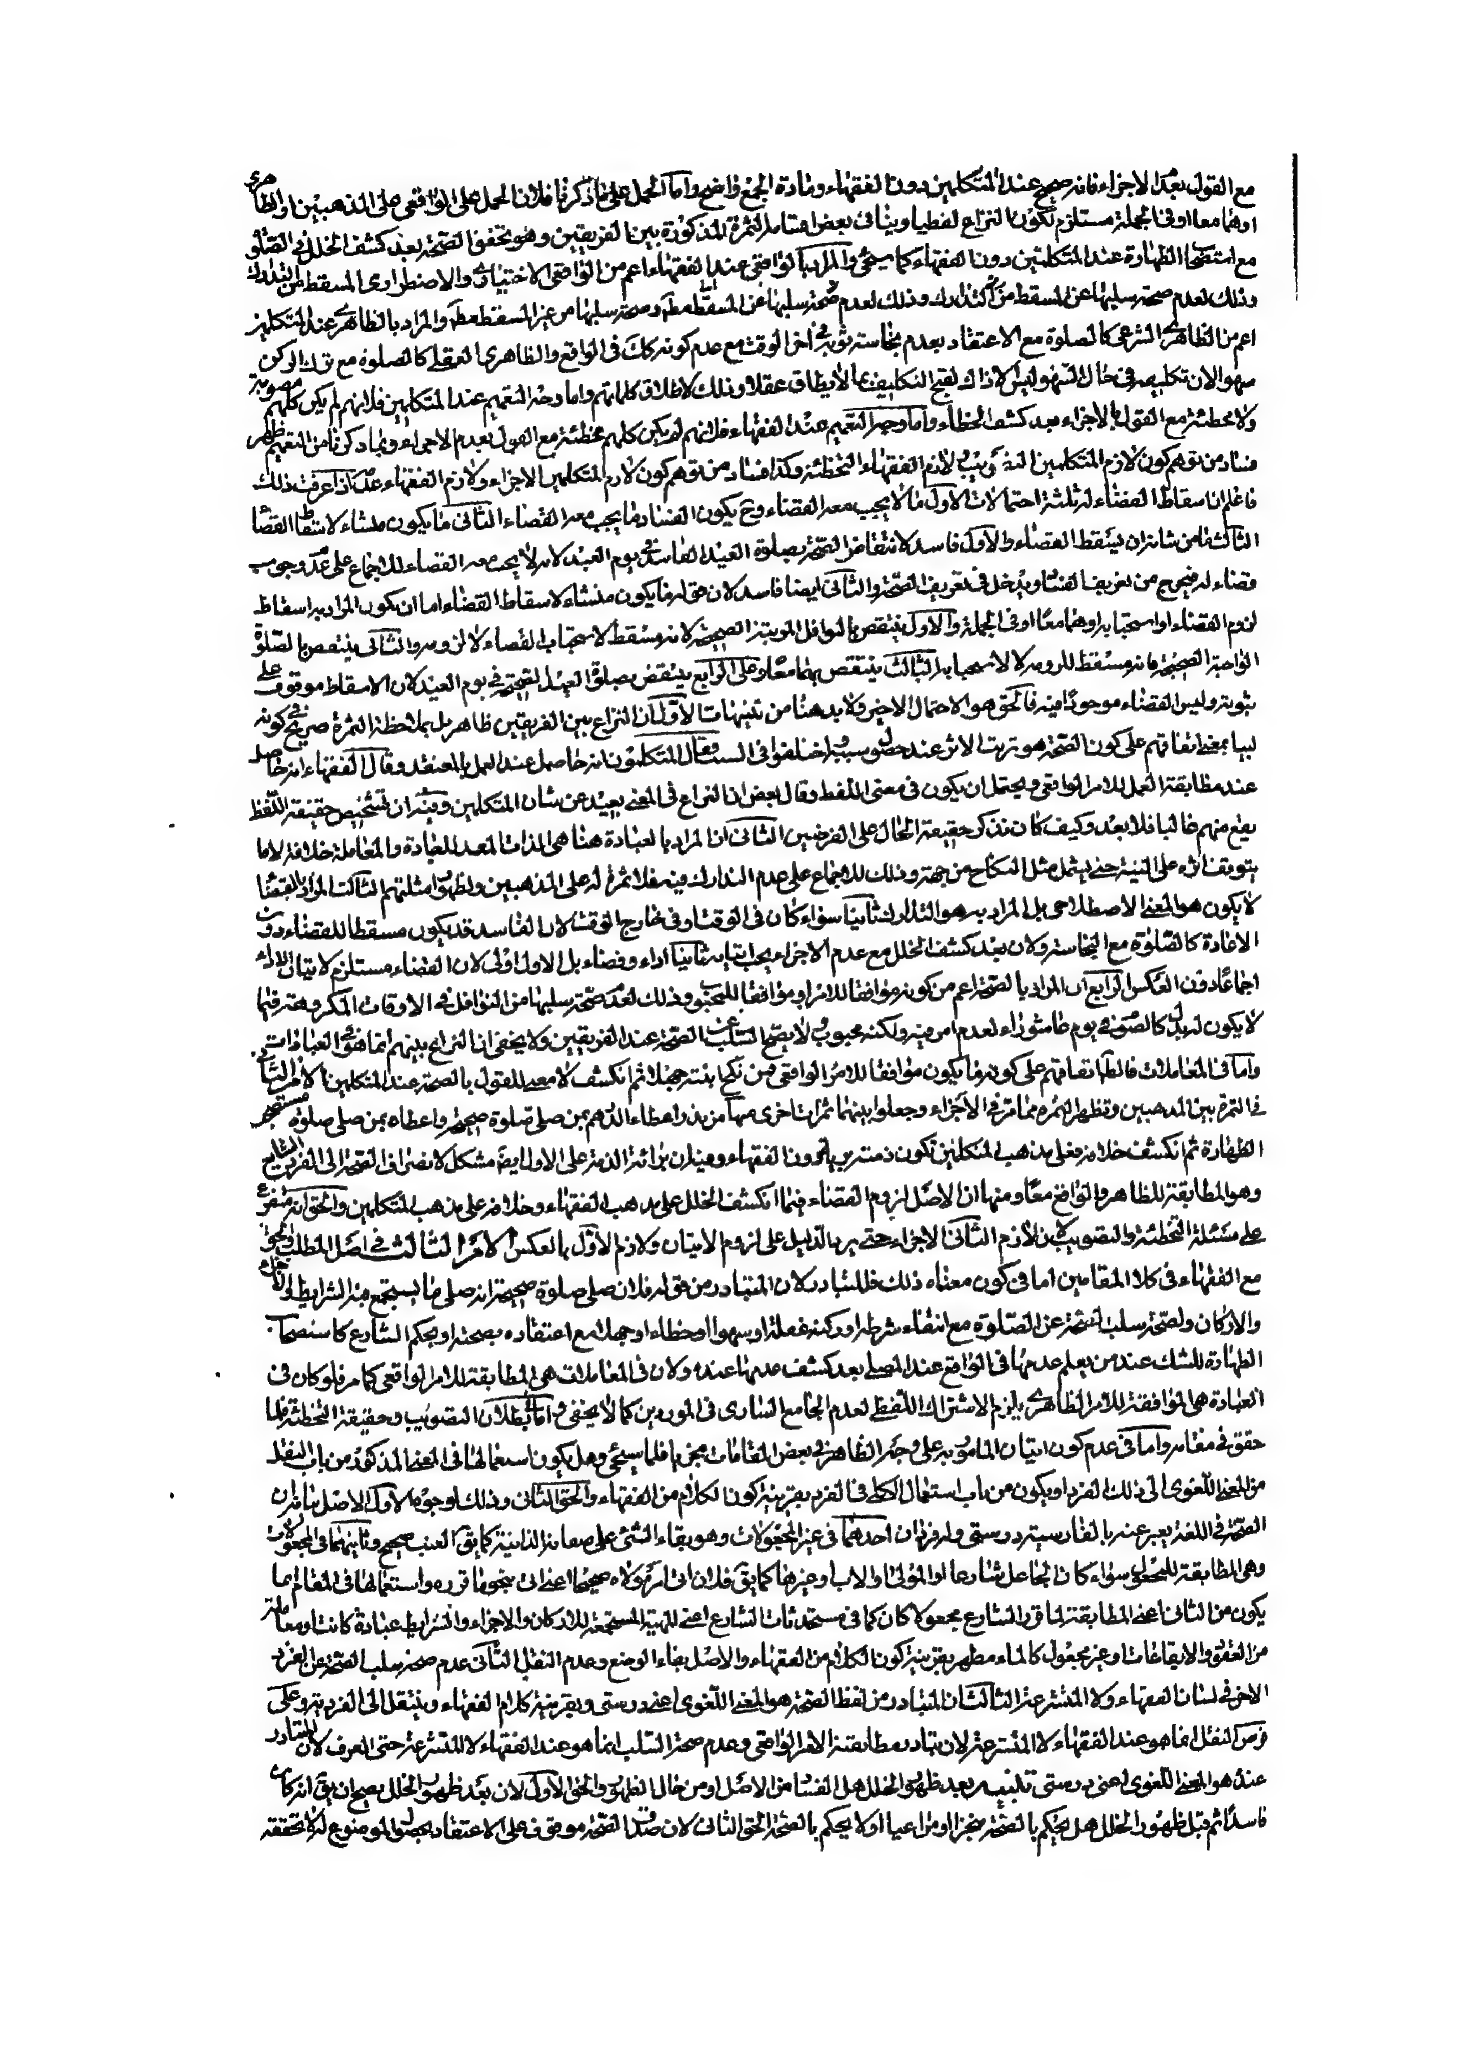 مع القول بعدم الاجزاء فانه صحيح عند المتكلمين دون الفقهاء ومادة الجمع واضح واما الحمل على ما ذكرنا فلان الحمل على الواقعى على المذهبين او الظاهرى
او هما معا او فى الجملة مستلزم لكون النزاع لفظيا وينافى بعض اقسام الثمرة المذكورة بين الفريقين وهو تحقق الصحة بعد كشف الخلل فى الصلوة
مع استصحاب الطهارة عند المتكلمين دون الفقهاء كما سيجئ والمراد بالواقعى عند الفقهاء اعم من الواقعى الاختيارى والاضطرارى المسقط عن التدارك
وذلك لعدم صحة سلبها عن المسقط من التدارك وذلك لعدم صحة سلبها عن المسقط مط وصحة سلبها من غير المسقط مط والمراد بالظاهرى عند المتكلمين
اعم من الظاهرى الشرعى كالصلوة مع الاعتقاد بعدم نجاسة ثوبه فى اخر الوقت مع عدم كونه كك فى الواقع والظاهرى العقلى كالصلوة مع ترك الركن
سهوا لان تكليفه فى حال السهو ليس الا ذاك لقبح التكليف بما لا يطاق عقلا وذلك لاطلاق كلماتهم واما وجه التعميم عند المتكلمين فلانهم لم يكن كلهم مصوبة
ولا مخطئة مع القول بالاجزاء بعد كشف الخطاء واما وجه التعميم عند الفقهاء فلانهم لم يكن كلهم مخطئة مع القول بعدم الاجزاء وبما ذكرنا من التعميم ظهر
فساد من توهم كون لازم المتكلمين التصويب ولازم الفقهاء التخطئة وكذا فساد من توهم كون لازم المتكلمين الاجزاء ولازم الفقهاء عدمه اذا عرفت ذلك
فاعلم ان اسقاط القضاء له ثلثة احتمالات الاول ما لا يجب معه القضاء وح يكون الفساد ما يجب معه القضاء الثانى ما يكون منشاء لاسقاط القضاء
الثالث ما من شانه ان يسقط القضاء والاول فاسد لانتقاض الصحة بصلوة العيد الفاسد فى يوم العيد لانه لا يجب معه القضاء للاجماع على عدم وجوب
قضاء له فيخرج من تعريف الفساد ويدخل فى تعريف الصحة والثانى ايضا فاسد لان قوله ما يكون منشاء لاسقاط القضاء اما ان يكون المراد به اسقاط
لزوم القضاء او استحبابه او هما معا او فى الجملة والاول ينتقض بالنوافل المرتبة الصحيحة لانه مسقط لاستحباب القضاء لا لزومه والثانى ينتقض بالصلوة
الواجبة الصحيحة فانه مسقط للزومه لا لاستحبابه والثالث ينتقض بهما معا وعلى الرابع ينتقض بصلوة العيد الصحيحة فى يوم العيد لان الاسقاط موقوف على
ثبوته وليس القضاء موجودا فيه فالحق هو الاحتمال الاخير ولا بد هنا من تنبيهات الاول ان النزاع بين الفريقين ظاهر بل بملاحظة الثمرة صريح فى كونه
لبيا بمعنى اتفاقهم على كون الصحة هو ترتب الاثر عند حصول سببه واختلفوا فى السبب فقال المتكلمون انه حاصل عند العمل بالمعتقد وقال الفقهاء انه حاصل
عند مطابقة العمل للامر الواقعى ويحتمل ان يكون فى معنى اللفظ وقال بعض ان النزاع فى المعنى بعيد عن شان المتكلمين وفيه ان تشخيص حقيقة اللفظ
يقع منهم غالبا فلا بعد وكيف كان نذكر حقيقة الحال على الفرضين الثانى ان المراد بالعبادة هنا هى الذات المعد للعبادة والمعاملة خلافه لا ما
يتوقف اثره على النية حتى يشمل مثل النكاح من جهة وذلك للاجماع على عدم التدارك فيه فلا ثمرة له على المذهبين ولظهور امثلتهم الثالث المراد بالقضاء
لا يكون هو المعنى الاصطلاحى بل المراد به هو التدارك ثانيا سواء كان فى الوقت او فى خارج الوقت لان الفاسد قد يكون مسقطا للقضاء دون
الاعادة كالصلوة مع النجاسة ولان بعد كشف الخلل مع عدم الاجزاء يجب اتيانه ثانيا اداء وقضاء بل الاول اولى لان القضاء مستلزم لاتيان الاداء
اجماعا دون العكس الرابع ان المراد بالصحة اعم من كونه موافقا للامر او موافقا للمحبوب وذلك لعدم صحة سلبها من النوافل فى الاوقات المكروهة فيما
لا يكون له بدل كالصوم فى يوم عاشوراء لعدم امر فيه ولكنه محبوب ولا يصح سلب الصحة عنه عند الفريقين ولا يخفى ان النزاع بينهم انما هو فى العبادات
واما فى المعاملات فالظاهر اتفاقهم على كونه ما يكون موافقا للامر الواقعى فمن نكح بنته جهلا ثم انكشف لا معنى للقول بالصحة عند المتكلمين الامر الثانى
فى الثمرة بين المذهبين وتظهر الثمرة مما مر فى الاجزاء وجعلوا بينهما ثمرات اخرى منها من نذر اعطاء الدرهم بمن صلى صلوة صحيحة واعطاه بمن صلى صلوة مستصحب
الطهارة ثم انكشف خلافه فعلى مذهب المتكلمين تكون ذمته برية دون الفقهاء وفيه ان برائة الذمة على الاول ايضا مشكل لانصراف الصحة الى الفرد الشايع
وهو المطابقة للظاهر والواقع معا ومنها ان الاصل لزوم القضاء فيما انكشف الخلل على مذهب الفقهاء وخلافه على مذهب المتكلمين والحق انه متفرع
على مسئلة التخطئة والتصويب لان لازم الثانى الاجزاء حتى يرد الدليل على لزوم الاتيان ولازم الاول بالعكس الامر الثالث فى اصل المطلب والحق
مع الفقهاء فى كلا المقامين اما فى كون معناه ذلك فللتبادر لان المتبادر من قوله فلان صلى صلوة صحيحة انه صلى ما يستجمع فيه الشرايط والاجزاء
والاركان ولصحة سلب الصحة عن الصلوة مع انتفاء شرط او ركنه غفلة او سهوا او خطاء او جهلا مع اعتقاده بصحته او بحكم الشارع كاستصحاب
الطهارة للشك عند من يعلم عدمها فى الواقع عند المصلى بعد كشف عدمها عنده ولان فى المعاملات هى المطابقة للامر الواقعى كما مر فلو كان فى
العبادة هى الموافقة للامر الظاهرى يلزم الاشتراك اللفظى لعدم الجامع السارى فى الموردين كما لا يخفى واما بطلان التصويب وحقيقة التخطئة فلما
حقق فى مقامه واما فى عدم كون اتيان المامور به على وجه الظاهر فى بعض المقامات مجزيا فلما سيجئ وهل يكون استعمالها فى المعنى المذكور من باب النقل
من المعنى اللغوى الى ذلك الفرد او يكون من باب استعمال الكلى فى الفرد بقرينة كون الكلام من الفقهاء والحق الثانى وذلك لوجوه الاول الاصل بيانه ان
الصحة فى اللغة يعبر عنه بالفارسية درستى وله فردان احدهما فى غير المجعولات وهو بقاء الشئ على صفاته الذاتية كما يق العنب صحيح وثانيهما فى المجعولات
وهى المطابقة للمجعول سواء كان الجاعل شارعا او المولى او الاب او غيرها كما يق فلان اتى امر مولاه صحيحا اعنى اتى بنحو ما قرره واستعمالها فى المقام اما
يكون من الثانى اعنى المطابقة لما قرر الشارع مجعولا كان كما فى مستحدثات الشارع اعنى للهيئة المستجمعة للاركان والاجزاء والشرايط عبادة كانت او معاملة
من العقود والايقاعات او غير مجعول كالماء مطهر بقرينة كون الكلام من الفقهاء والاصل بقاء الوضع وعدم النقل الثانى عدم صحة سلب الصحة عن الفرد
الاخر فى لسان الفقهاء ولا المتشرعة الثالث ان المتبادر من لفظ الصحة هو المعنى اللغوى اعنى درستى وبقرينة كلام الفقهاء وينتقل الى الفردية وعلى
فرض النقل انما هو عند الفقهاء لا المتشرعة لان تبادر مطابقة الامر الواقعى وعدم صحة السلب انما هو عند الفقهاء لا المتشرعة حتى العرف لان المتبادر
عنده هو المعنى اللغوى اعنى درستى تنبيه بعد ظهور الخلل هل الفساد من الاصل او من حال الظهور والحق الاول لان بعد ظهور الخلل يصح ان يق انه كان
فاسدا ثم قبل ظهور الخلل هل يحكم بالصحة منجزا او مراعيا او لا يحكم بالصحة الحق الثانى لان صدق الصحة موقوف على الاعتقاد بحصول الموضوع له لا تحققه